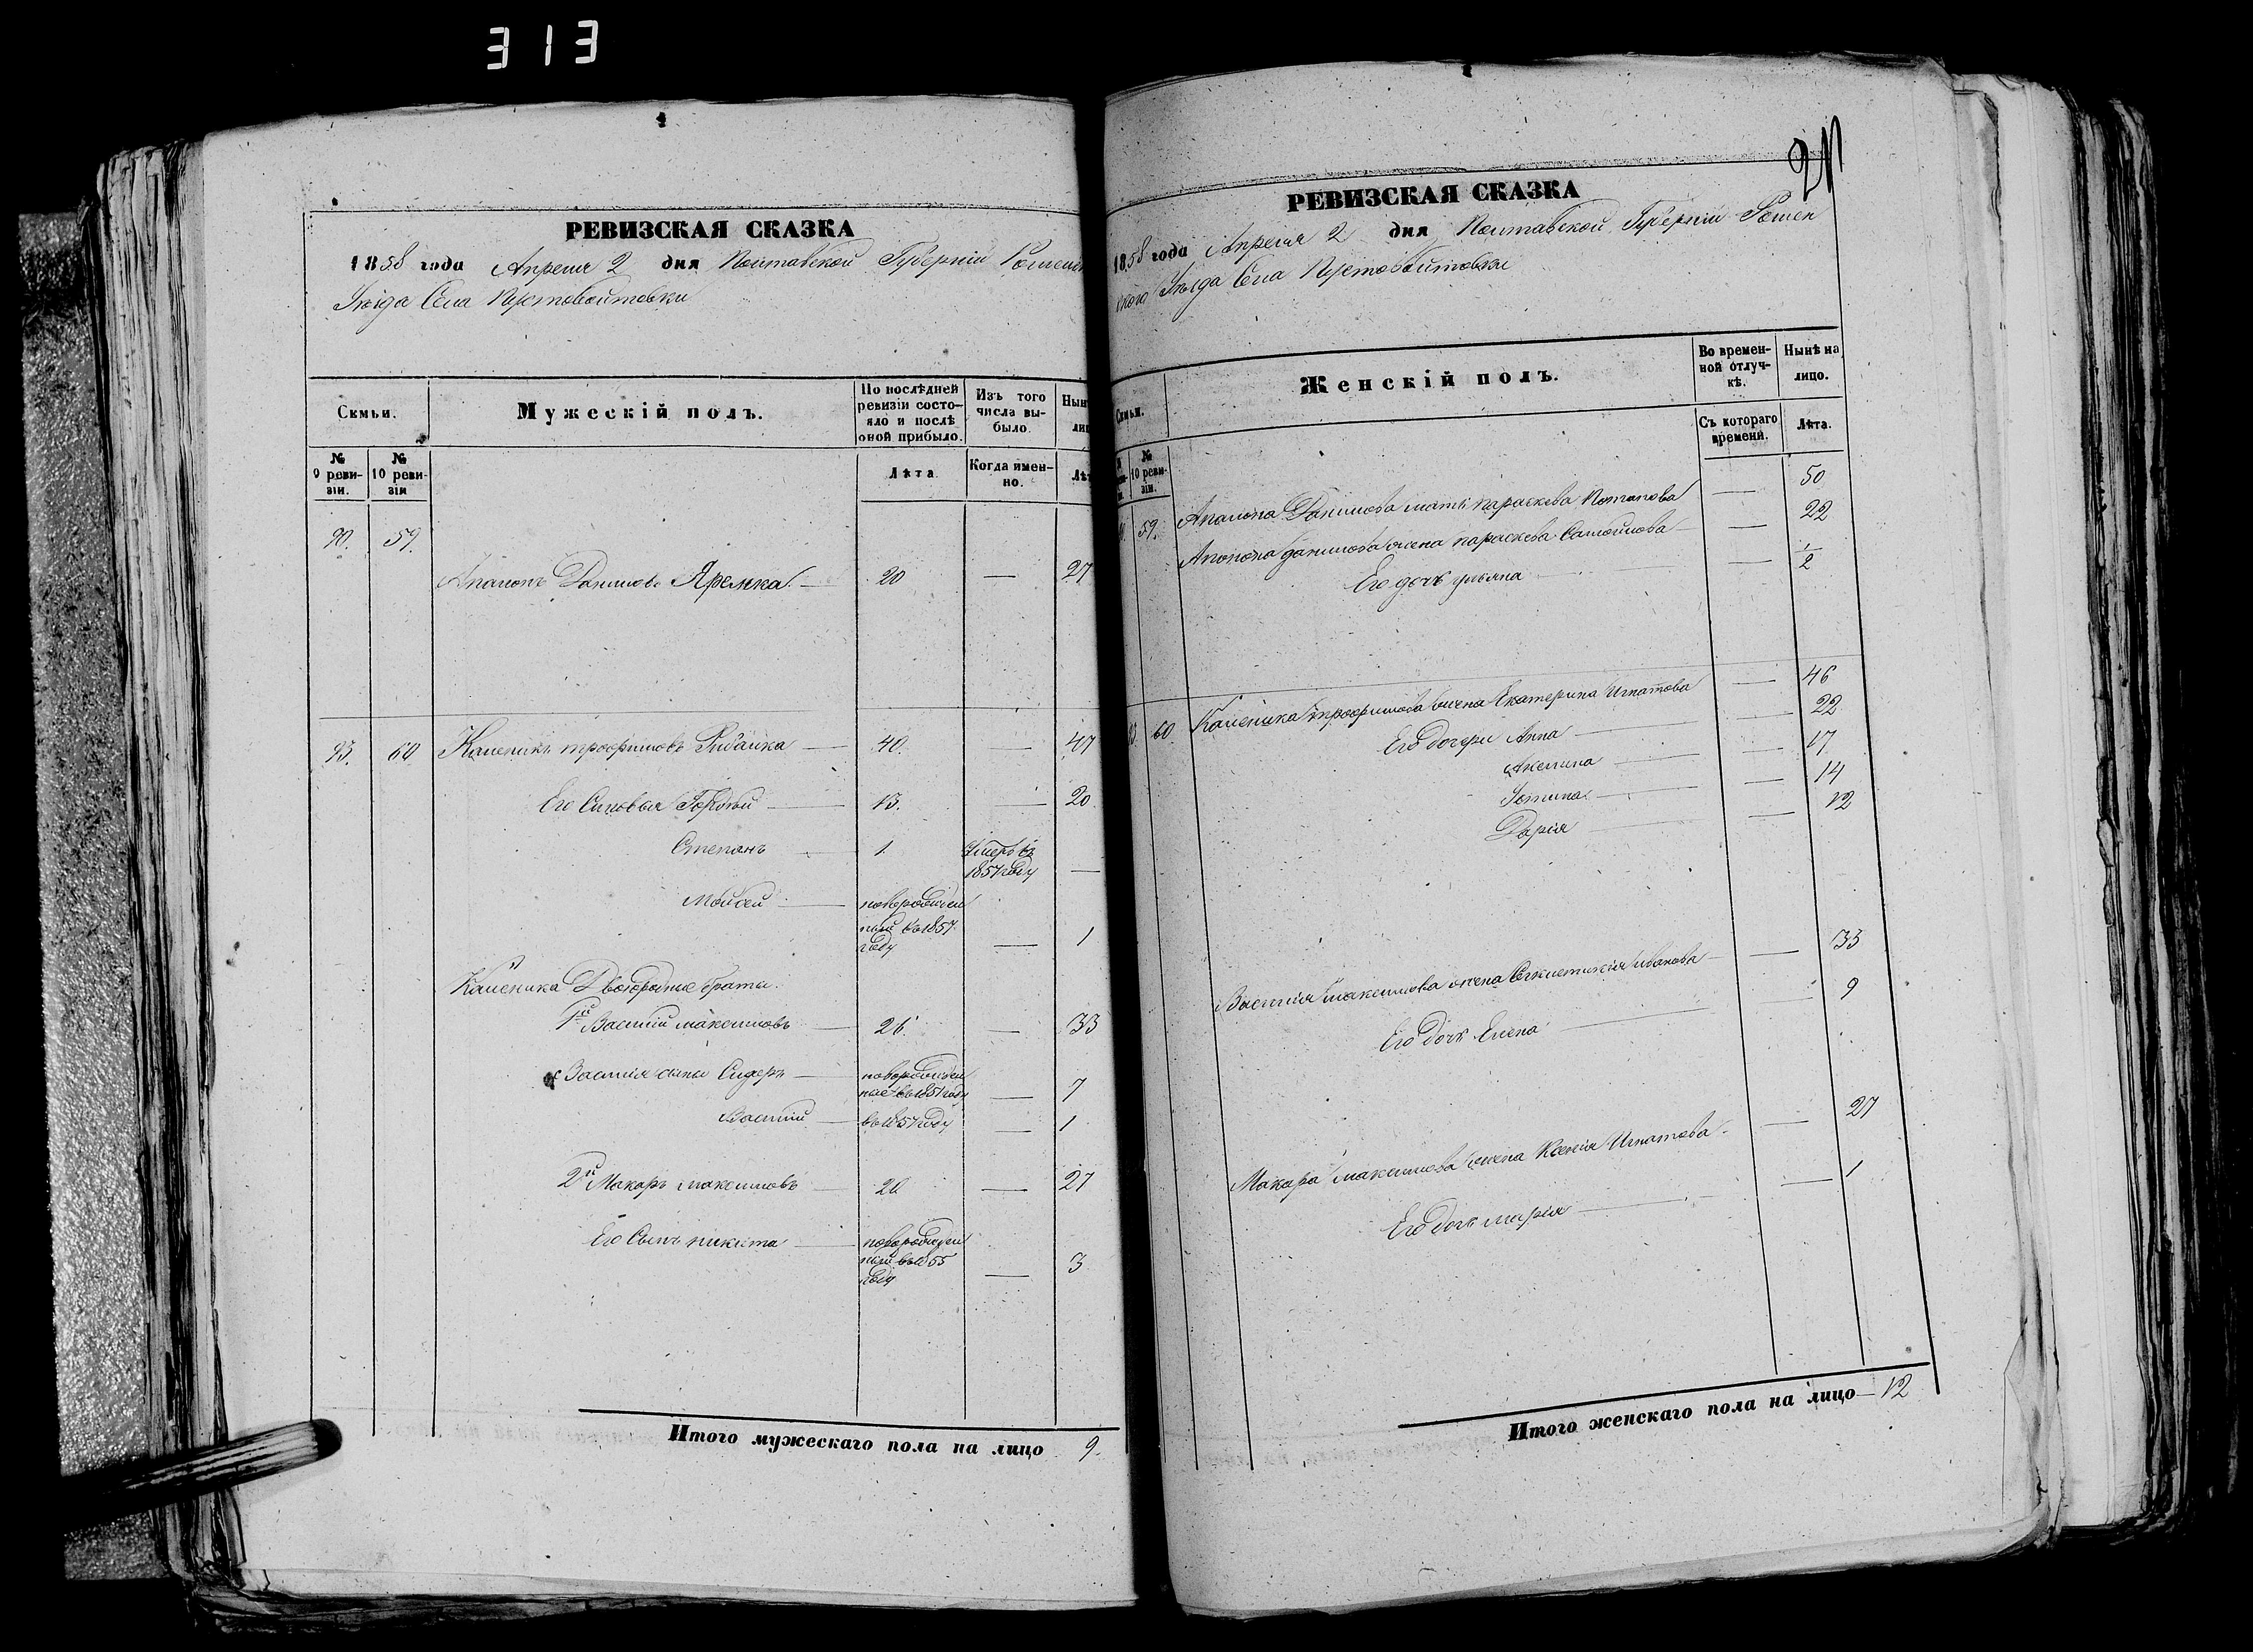 313
РЕВИЗСКАЯ СКАЗКА
1858 года Апреля 2 дня Полтавской Губерніи Роменс
Уѣзда Села Пустовойтовки
Скмьи.
Мужескій полъ.
По послѣдней ревизіи состояло и послѣ оной прибыло.
Изъ того числа выбыло.
Нын
лиц
№ 9 ревизіи.
№ 10 ревизіи
Лѣта
Когда именно.
Лѣт
90. 59.
Апалонъ Даниловъ Яремка — 20 — 27
93. 60 Каленикъ трофимовъ Рибалка — 40. — 47
Его Сыновья Гордѣй — 13. — 20
Степанъ — 1. Умеръ въ
1857 году —
Мойсей — новорожден
ный въ 1857
году — 1
Каленика Двоюродные браты:
1й Василій максимовъ — 26. — 33
Василія сыны Сидоръ — новорожден
ные въ 1851 году — 7
Василій — въ 1857 году — 1
2й Макаръ максимовъ — 20 — 27
Его Сынъ никита — новорожден
ный въ 1855
году — 3
Итого мужескаго пола на лицо 9.
21
РЕВИЗСКАЯ СКАЗКА
1858 года Апреля 2 дня Полтавской Губерніи Ромен
скаго Уѣзда Села Пустовойтовки
Скмьи.
Женскій полъ.
Во временной отлучкѣ.
Нынѣ на лицо.
№ 10 ревизіи.
Съ котораго времени.
Лѣта.
59. Апалона Данилова мать параскева Потапова — 50
Аполона данилова жена параскева Самойлова — 22
Его дочь ульяна — 1/2
60 Каленика трофимова жена Екатерина Игнатова — 46
Его дочери Анна — 22
Акелина — 17
Устина — 14
Дарія — 12
Василія максимова жена Иванова — 33
Его дочь Елена — 9
Макара максимова жена Ксенія Игнатова — 27
Его дочь марія — 1
Итого женскаго пола на лицо — 12